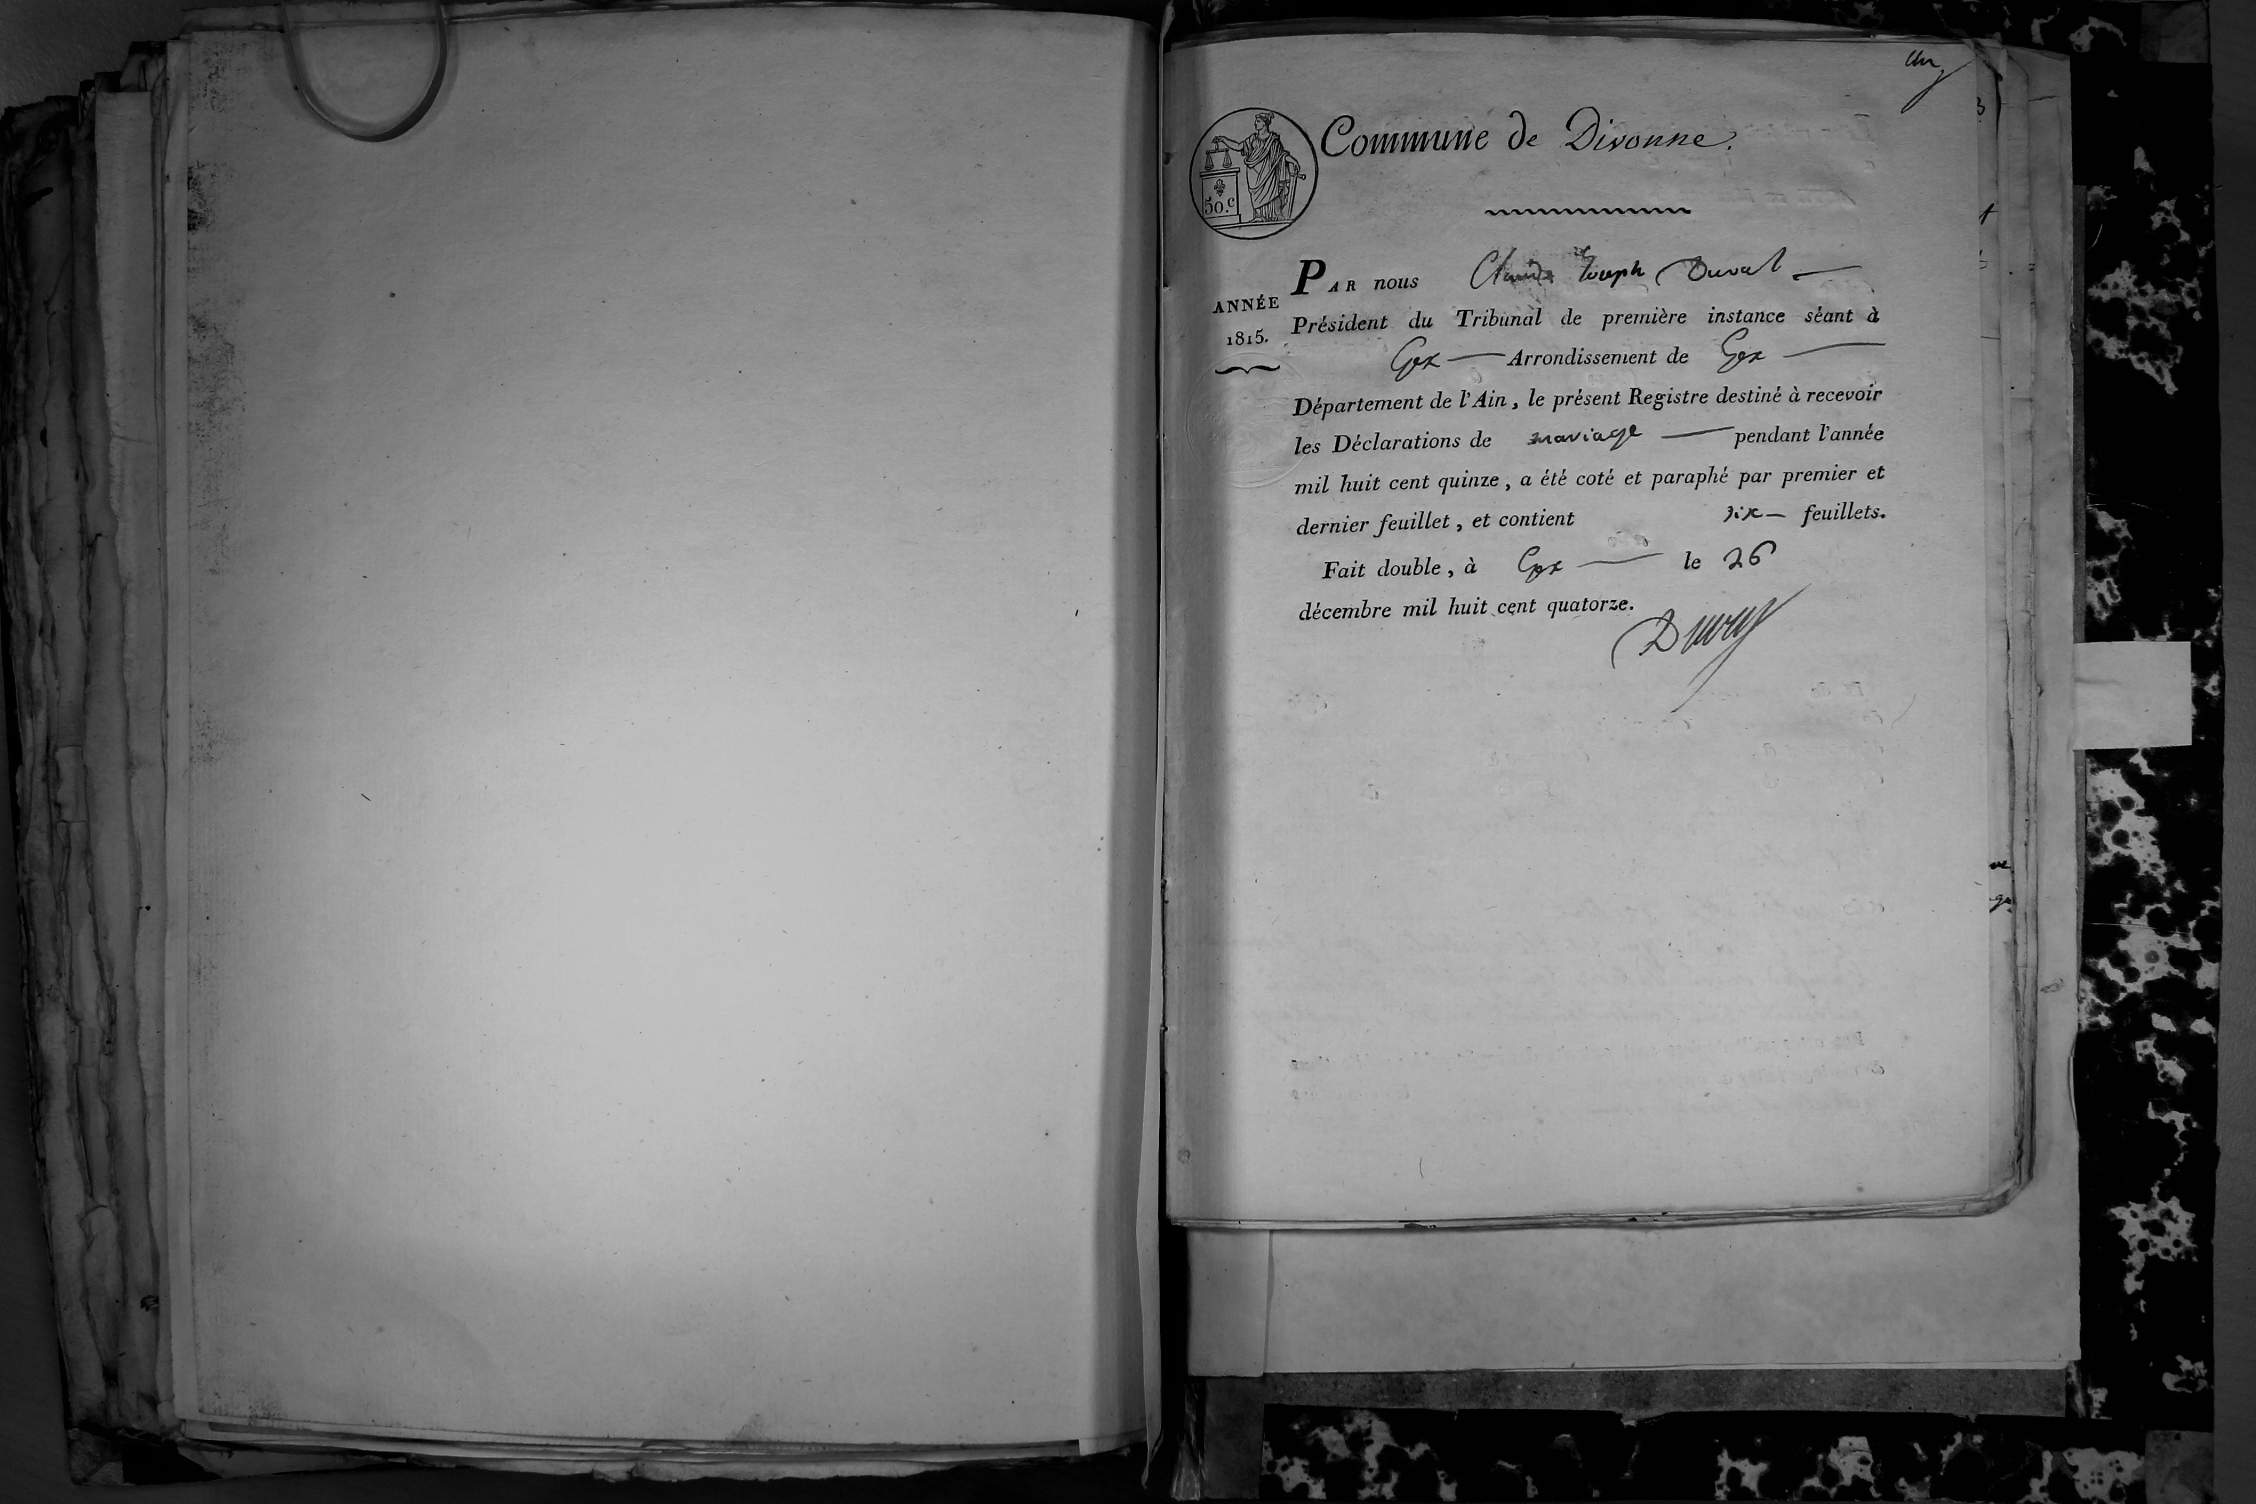 un
Commune de Divonne.
50.c
ANNÉE
1815.
PAR nous Claude Joseph Duval
Président du Tribunal de première instance séant à
Gex Arrondissement de Gex
Département de l'Ain, le présent Registre destiné à recevoir
les Déclarations de mariage pendant l'année
mil huit cent quinze, a été coté et paraphé par premier et
dernier feuillet, et contient six feuillets.
Fait double, à Gex le 26
décembre mil huit cent quatorze.
Duval